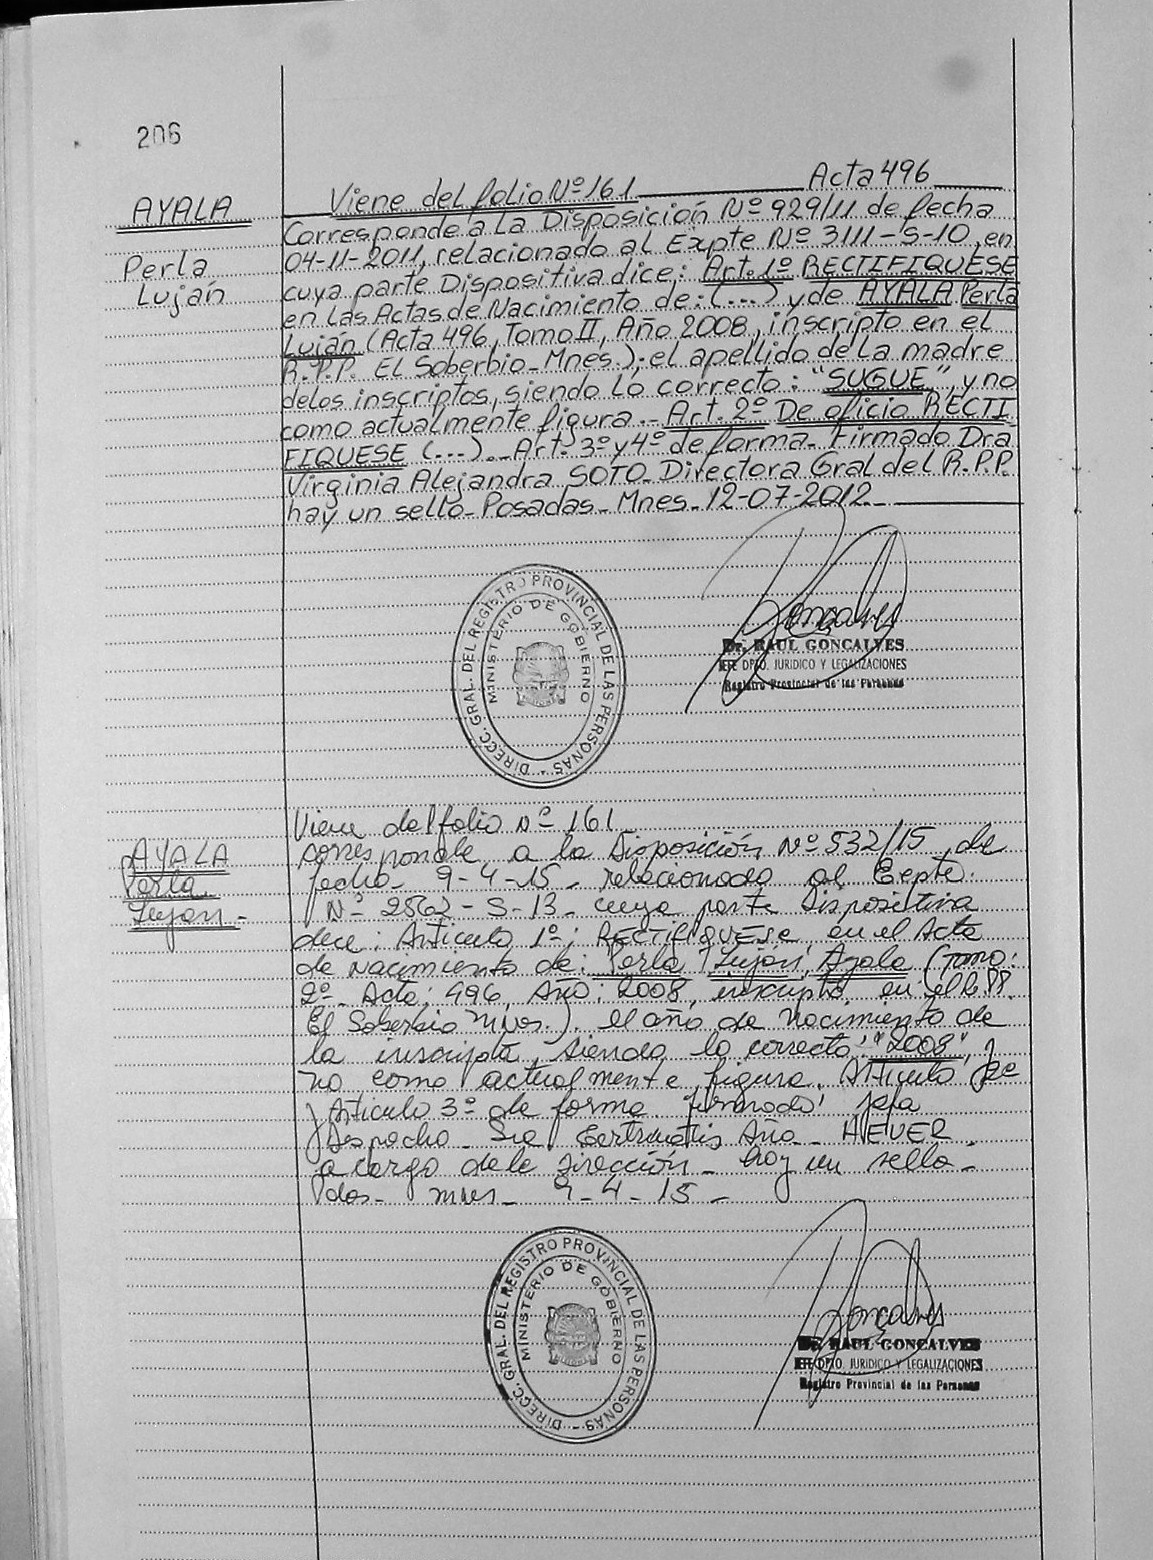 206
AYALA
Perla
Luján
Viene del folio Nº 161 Acta 496
Corresponde a la Disposición Nº 929/11 de fecha
04-11-2011, relacionado al Expte Nº 3111-S-10, en
cuya parte Dispositiva dice: Art. 1º RECTIFIQUESE
en las Actas de Nacimiento de: (...) y de AYALA Perla
Luján (Acta 496, Tomo II, Año 2008, inscripto en el
R.P.P. El Soberbio-Mnes.); el apellido de la madre
de los inscriptos, siendo lo correcto: "SUGUE", y no
como actualmente figura.- Art. 2º De oficio RECTI
FIQUESE (...).- Art. 3º y 4º de forma- Firmado Dra
Virginia Alejandra SOTO- Directora Gral del R.P.P.
hay un sello- Posadas- Mnes- 12-07-2012-
DIRECC. GRAL. DEL REGISTRO PROVINCIAL DE LAS PERSONAS -
MINISTERIO DE GOBIERNO
Goncalves
Dr. RAUL GONCALVES
JEFE DPTO. JURIDICO Y LEGALIZACIONES
Registro Provincial de las Personas
AYALA
Perla
Lujan -
Viene del folio Nº 161
corresponde a la Disposición Nº 532/15 de
fecha- 9-4-15- relacionado al Expte.
Nº 2862-S-13- cuya parte Dispositiva
dice: Articulo 1º: RECTIFIQUESE en el Acta
de nacimiento de: Perla Lujan Ayala (Tomo:
2º- Acta: 496, Año: 2008, inscripta en el R.P.P.
El Soberbio Mnes.). el año de nacimiento de
la inscripta, siendo lo correcto: "2008", y
no como actualmente figura. Articulo
y Articulo 3º de forma firmado: jefa
Despacho- Sra Ana- HEVER
a cargo de la Dirección- hay un sello-
Pdas- mnes- 9-4-15-
DIRECC. GRAL. DEL REGISTRO PROVINCIAL DE LAS PERSONAS -
MINISTERIO DE GOBIERNO
Goncalves
Dr. RAUL GONCALVES
JEFE DPTO. JURIDICO Y LEGALIZACIONES
Registro Provincial de las Personas